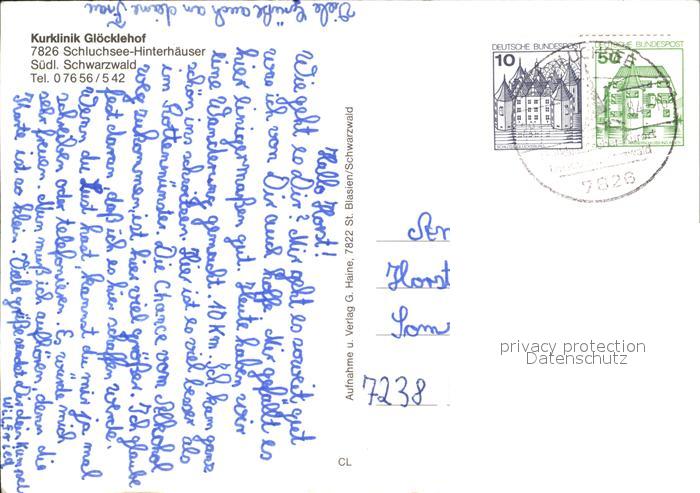 Kurklinik Glöcklehof
7826 Schluchsee-Hinterhäuser
Südl. Schwarzwald
Tel. 0 76 56 / 5 42
Hallo Horst!
Wie geht es Dir? Mir geht es soweit gut
was ich von Dir auch hoffe. Mir gefällt es
hier einigermaßen gut. Heute haben wir
eine Wanderung gemacht. 10 Km. Ich kam ganz
schön ins schwitzen. Hier ist es viel besser als
im Rottenmünster. Die Chance vom Alkohol
weg zukommen, ist hier viel größer. Ich glaube
fest daran daß ich es hier schaffen werde.
Wenn du Lust hast, kannst du mir ja mal
schreiben oder telefonieren. Es würde mich
sehr freuen. Nun muß ich aufhören, denn die
Karte ist so klein. Viele grüße sendet Dir dein Kumpel
Wilfried
Viele Grüße auch an deine Frau
Aufnahme u. Verlag G. Haine, 7822 St. Blasien/Schwarzwald
CL
DEUTSCHE BUNDESPOST
10
DEUTSCHE BUNDESPOST
50
7826
Horst
7238
privacy protection
Datenschutz